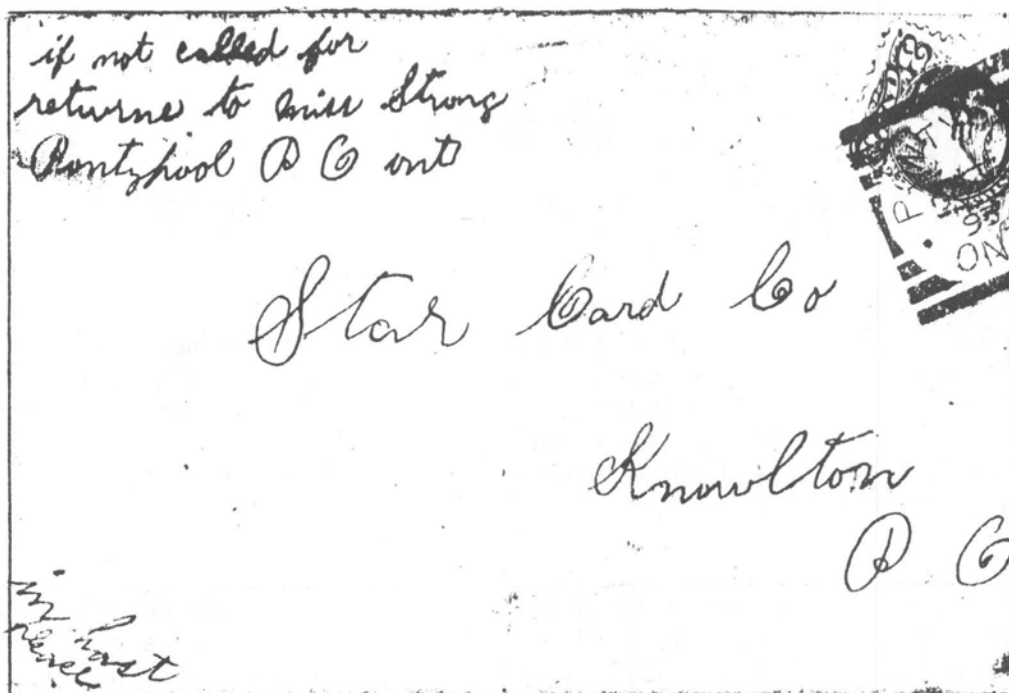 if not called for
returne to miss Strong
Pontypool P O ont
Star Card Co
Knowlton
P O
in hast
P
95
ON